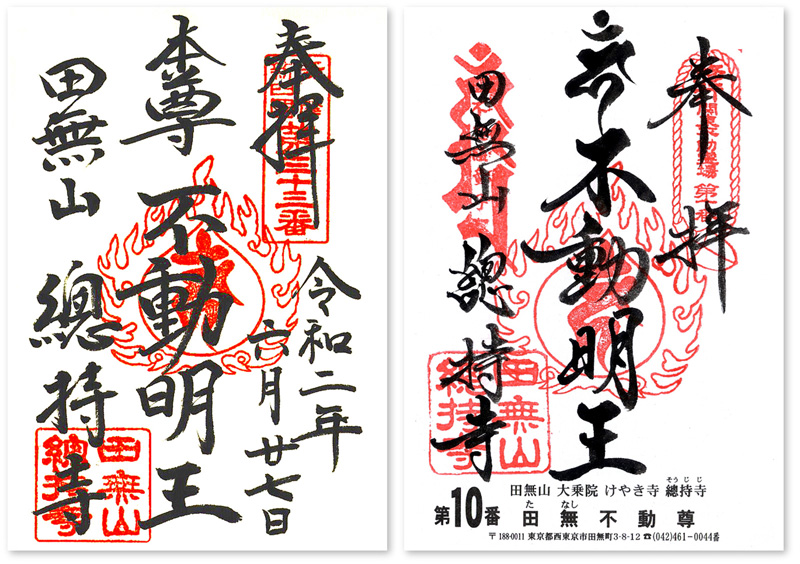 奉拝
令和二年
六月廿七日
本尊 不動明王
田無山 總持寺
田無山
總持寺
奉拝
不動明王
田無山 總持寺
田無山
總持寺
田無山 大乗院 けやき寺 總持寺
そうじじ
第10番 田無不動尊
たなし
〒188-0011 東京都西東京市田無町3-8-12 ☎(042)461-0044番